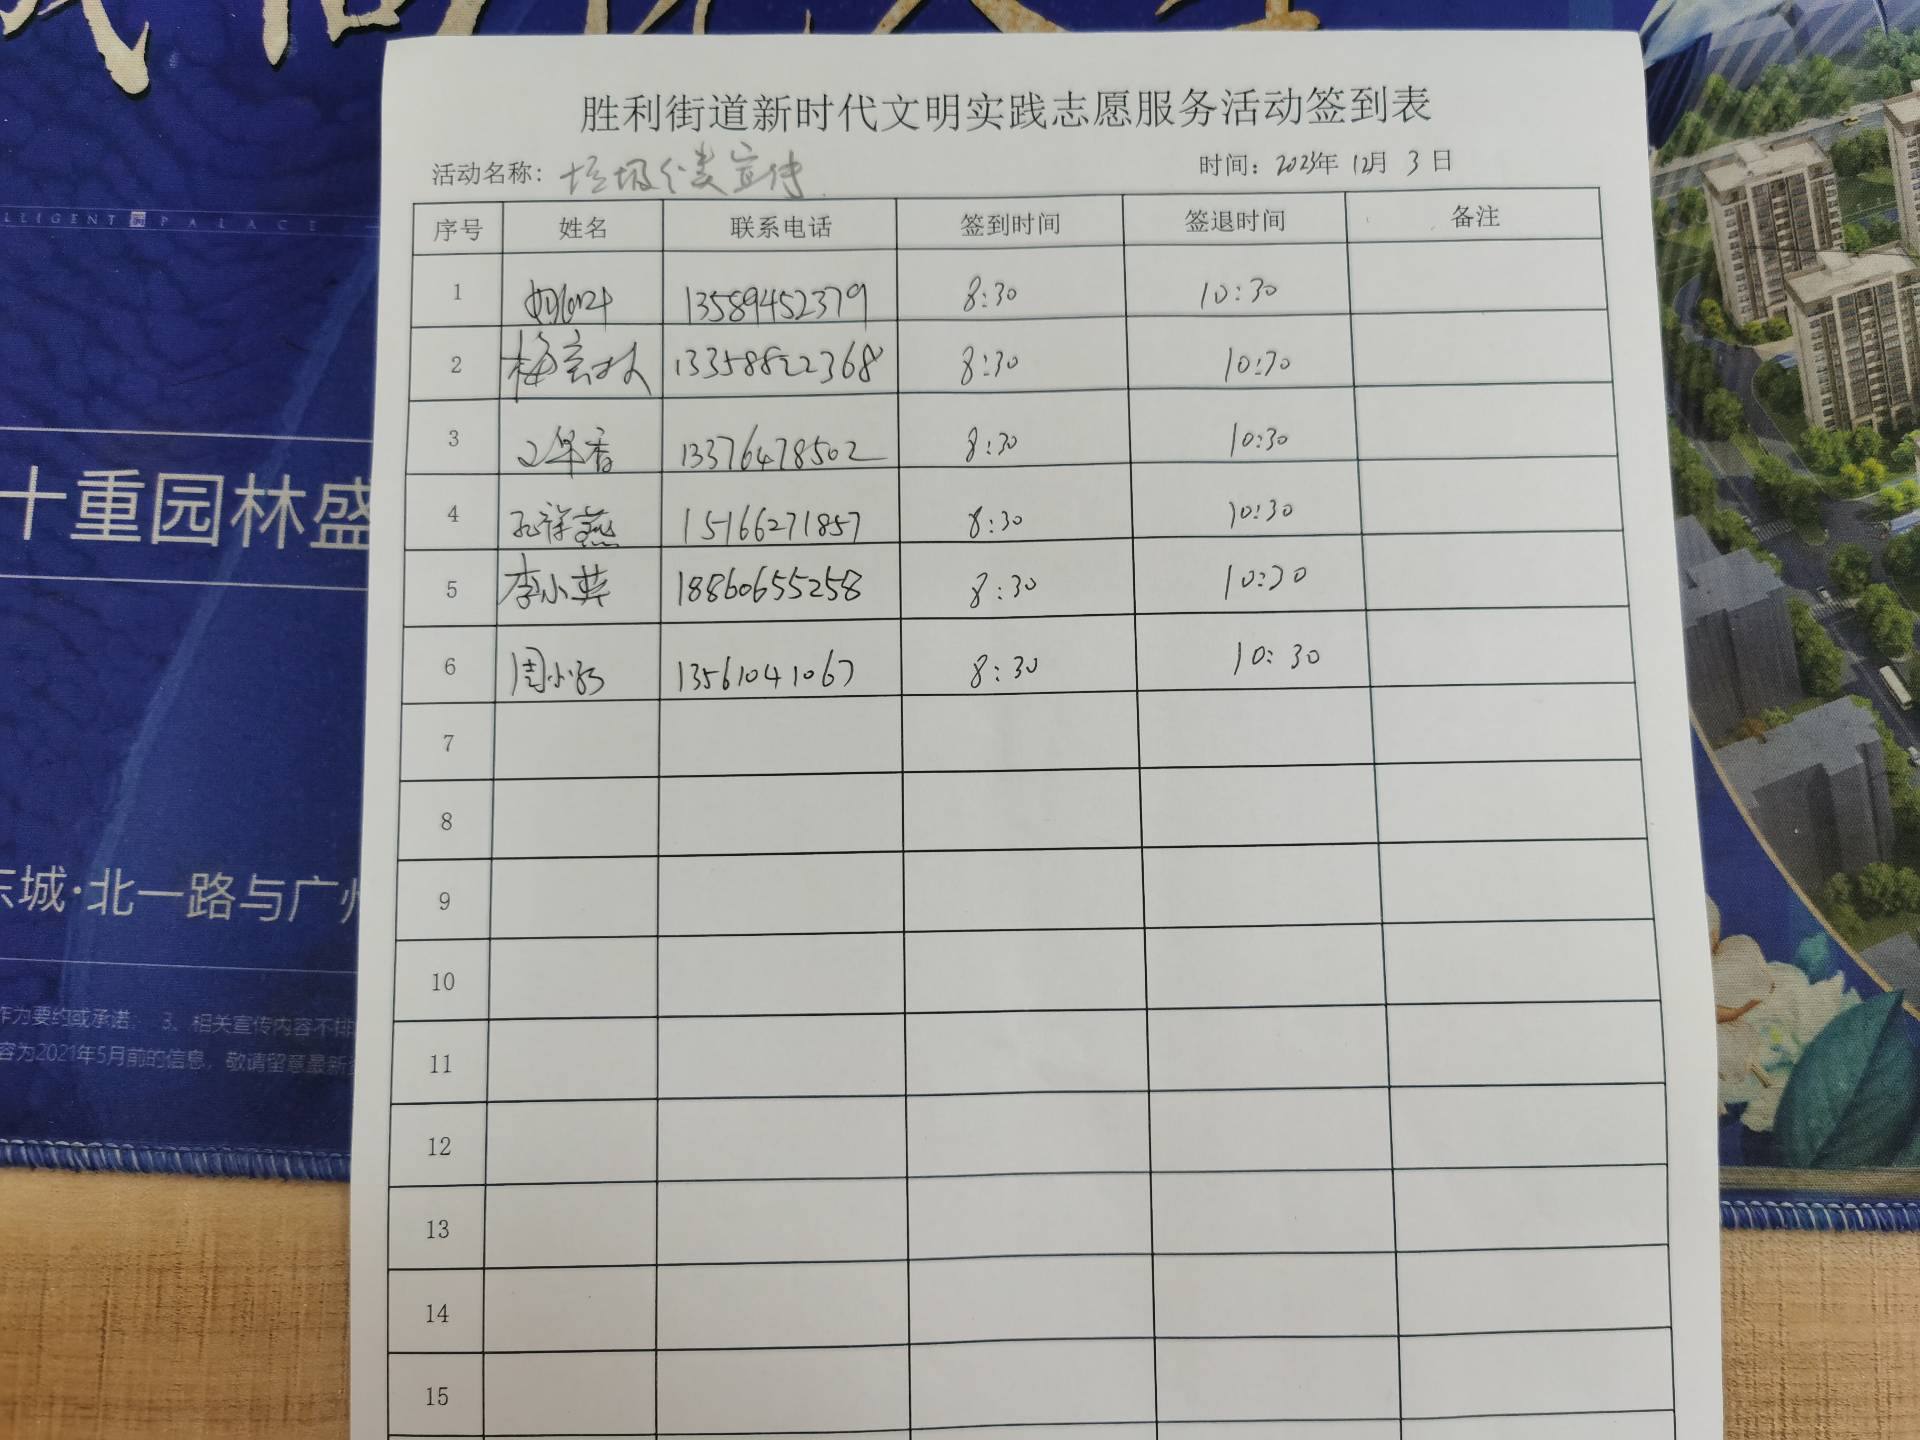 LLIGENT PALACE
十重园林盛
东城·北一路与广州
作为要约或承诺。 3、相关宣传内容不排
容为2021年5月前的信息，敬请留意最新
胜利街道新时代文明实践志愿服务活动签到表
活动名称：垃圾分类宣传 时间：2023年 12月 3 日
序号 姓名 联系电话 签到时间 签退时间 备注
1 13589452379 8:30 10:30
2 梅 林 13358822368 8:30 10:30
3 香 13376478502 8:30 10:30
4 孔祥燕 15166271857 8:30 10:30
5 李小英 18860655258 8:30 10:30
6 周小 13561041067 8:30 10:30
7
8
9
10
11
12
13
14
15